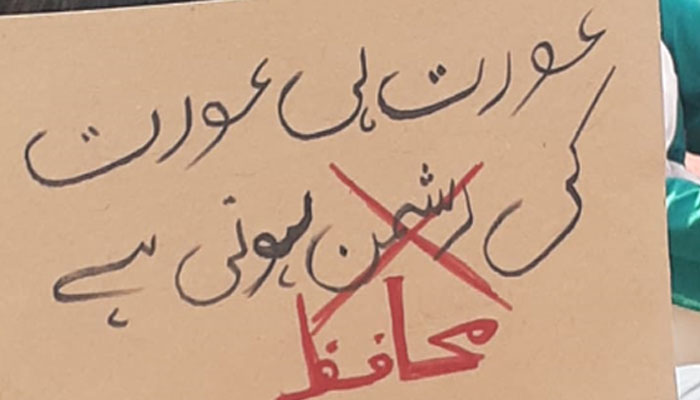 عورت ہی عورت
کی دشمن ہوتی ہے
محافظ